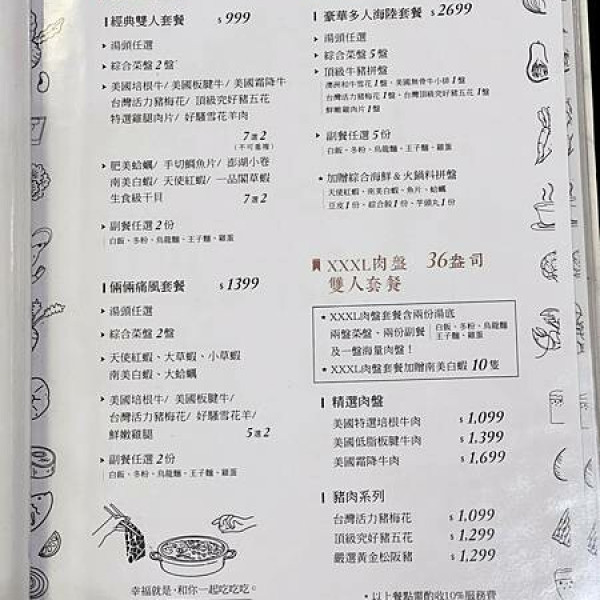 經典雙人套餐 $ 999
湯頭任選
綜合菜盤 2盤
美國培根牛/ 美國板腱牛/ 美國霜降牛
台灣活力豬梅花/ 頂級究好豬五花
特選雞腿肉片/ 好騷雪花羊肉
7選2
(不可重複)
肥美蛤蠣/ 手切鯛魚片/ 澎湖小卷
南美白蝦/ 天使紅蝦/ 一品閣草蝦
生食級干貝 7選2
副餐任選 2份
白飯、冬粉、烏龍麵、王子麵、雞蛋
倆倆痛風套餐 $ 1399
湯頭任選
綜合菜盤 2盤
天使紅蝦、大草蝦、小草蝦
南美白蝦、大蛤蠣
美國培根牛/ 美國板腱牛/
台灣活力豬梅花/ 好騷雪花羊/
鮮嫩雞腿 5選2
副餐任選 2份
白飯、冬粉、烏龍麵、王子麵、雞蛋
幸福就是,和你一起吃吃吃。
豪華多人海陸套餐 $ 2699
湯頭任選
綜合菜盤 5盤
頂級牛豬拼盤
澳洲和牛雪花 1盤、美國無骨牛小排 1盤
台灣活力豬梅花 1盤、台灣頂級究好豬五花 1盤
鮮嫩雞肉片 1盤
副餐任選 5份
白飯、冬粉、烏龍麵、王子麵、雞蛋
加贈綜合海鮮＆火鍋料拼盤
天使紅蝦、南美白蝦、魚片、蛤蠣
豆皮 1份、綜合餃 1份、芋頭丸 1份
XXXL肉盤 36盎司
雙人套餐
★ XXXL肉盤套餐含兩份湯底
兩盤菜盤、兩份副餐 白飯、冬粉、烏龍麵
王子麵、雞蛋
及一盤海量肉盤！
★ XXXL肉盤套餐加贈南美白蝦 10隻
精選肉盤
美國特選培根牛肉 $ 1,099
美國低脂板腱牛肉 $ 1,399
美國霜降牛肉 $ 1,699
豬肉系列
台灣活力豬梅花 $ 1,099
頂級究好豬五花 $ 1,299
嚴選黃金松阪豬 $ 1,299
* 以上餐點需酌收10%服務費